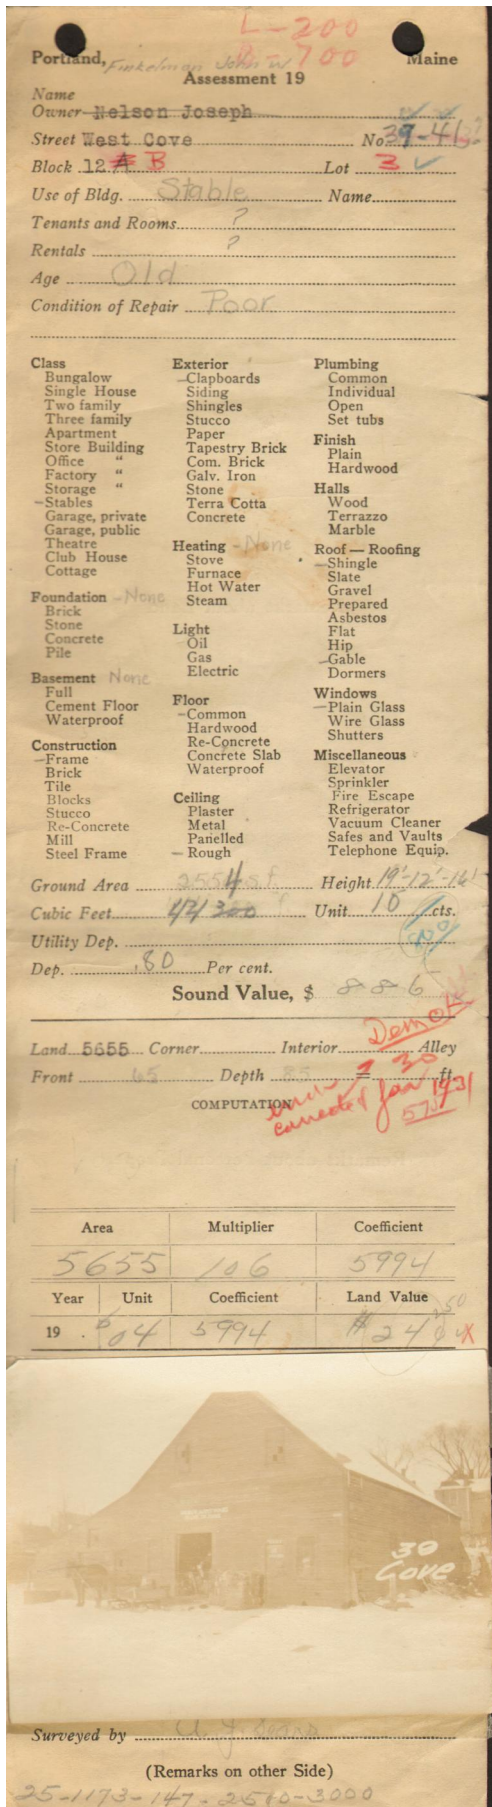 L-200
B-700
Portland, Finkelman John W Maine
Assessment 19
Name
Owner Nelson Joseph
Street West Cove No 39-41
Block 12 A B Lot 3 ✓
Use of Bldg. Stable Name
Tenants and Rooms ?
Rentals ?
Age Old
Condition of Repair Poor
Class
Bungalow
Single House
Two family
Three family
Apartment
Store Building
Office "
Factory "
Storage "
-Stables
Garage, private
Garage, public
Theatre
Club House
Cottage
Foundation -None
Brick
Stone
Concrete
Pile
Basement None
Full
Cement Floor
Waterproof
Construction
-Frame
Brick
Tile
Blocks
Stucco
Re-Concrete
Mill
Steel Frame
Exterior
-Clapboards
Siding
Shingles
Stucco
Paper
Tapestry Brick
Com. Brick
Galv. Iron
Stone
Terra Cotta
Concrete
Heating -None
Stove
Furnace
Hot Water
Steam
Light
Oil
Gas
Electric
Floor
-Common
Hardwood
Re-Concrete
Concrete Slab
Waterproof
Ceiling
Plaster
Metal
Panelled
-Rough
Plumbing
Common
Individual
Open
Set tubs
Finish
Plain
Hardwood
Halls
Wood
Terrazzo
Marble
Roof—Roofing
-Shingle
Slate
Gravel
Prepared
Asbestos
Flat
Hip
-Gable
Dormers
Windows
-Plain Glass
Wire Glass
Shutters
Miscellaneous
Elevator
Sprinkler
Fire Escape
Refrigerator
Vacuum Cleaner
Safes and Vaults
Telephone Equip.
Ground Area 2554 sf Height 19'-12'-16'
Cubic Feet Unit 10 cts.
Utility Dep.
Dep. .80 Per cent.
Sound Value, $ 886
Land 5655 Corner Interior Alley
Front 65 Depth 85 ft.
COMPUTATION
canceled for 1931
Area Multiplier Coefficient
5655 106 5994
Year Unit Coefficient Land Value
19 $ 04 5994 $ 240
250
X
30
Cove
Surveyed by
(Remarks on other Side)
25-1173-147-2580-3000